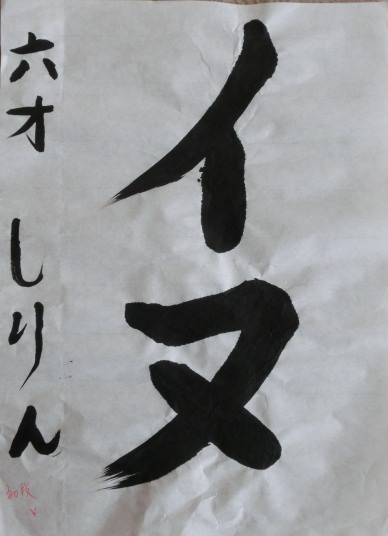 イヌ
六才 しりん